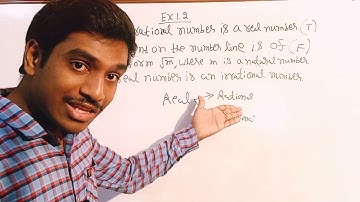 Ex 1.2
rational number is a real number. (T)
on the number line is of (F)
form √m, where m is a natural number
real number is an irrational number
Real → Rational